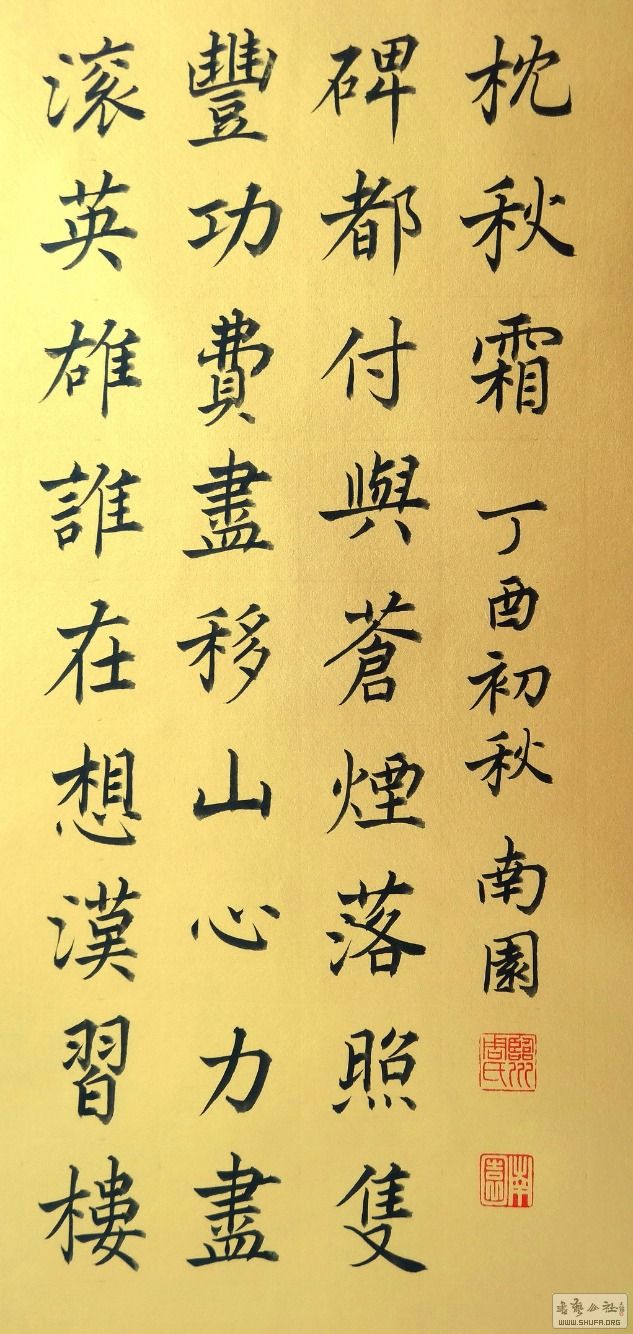 滚英雄誰在想漢習樓
豐功費盡移山心力盡
碑都付與蒼煙落照隻
枕秋霜 丁酉初秋 南園
臨川周氏
南園
書藝公社
WWW.SHUFA.ORG